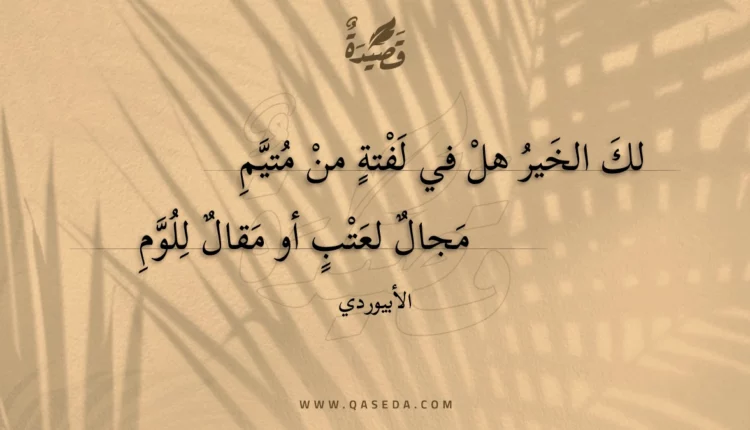 قَصِيْدَةٌ
لكَ الخَيرُ هلْ في لَفْتةٍ منْ مُتيَّمِ
مَجالٌ لعَتْبٍ أو مَقالٌ لِلُوَّمِ
الأبيوردي
WWW.QASEDA.COM